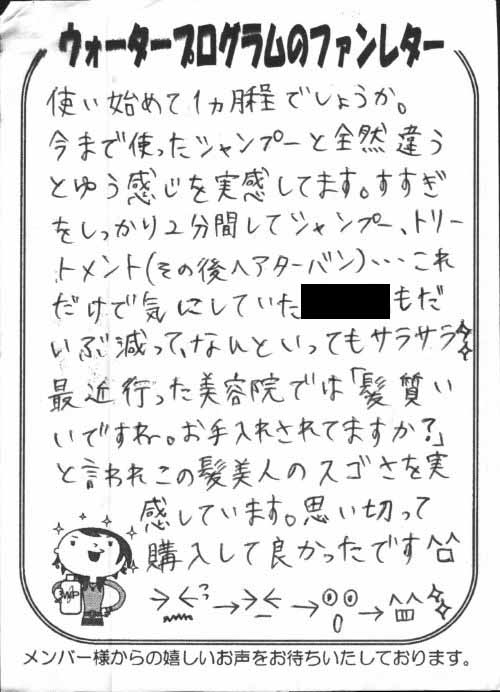 ウォータープログラムのファンレター
使い始めて1ヵ月程でしょうか。
今まで使ったシャンプーと全然違う
とゆう感じを実感してます。すすぎ
をしっかり2分間してシャンプー、トリー
トメント(その後ヘアターバン)・・・これ
だけで気にしていた もだ
いぶ減って、なんといってもサラサラ
最近行った美容院では「髪質い
いですね。お手入れされてますか?」
と言われこの髪美人のスゴさを実
感しています。思い切って
購入して良かったです^□^
WP
メンバー様からの嬉しいお声をお待ちいたしております。